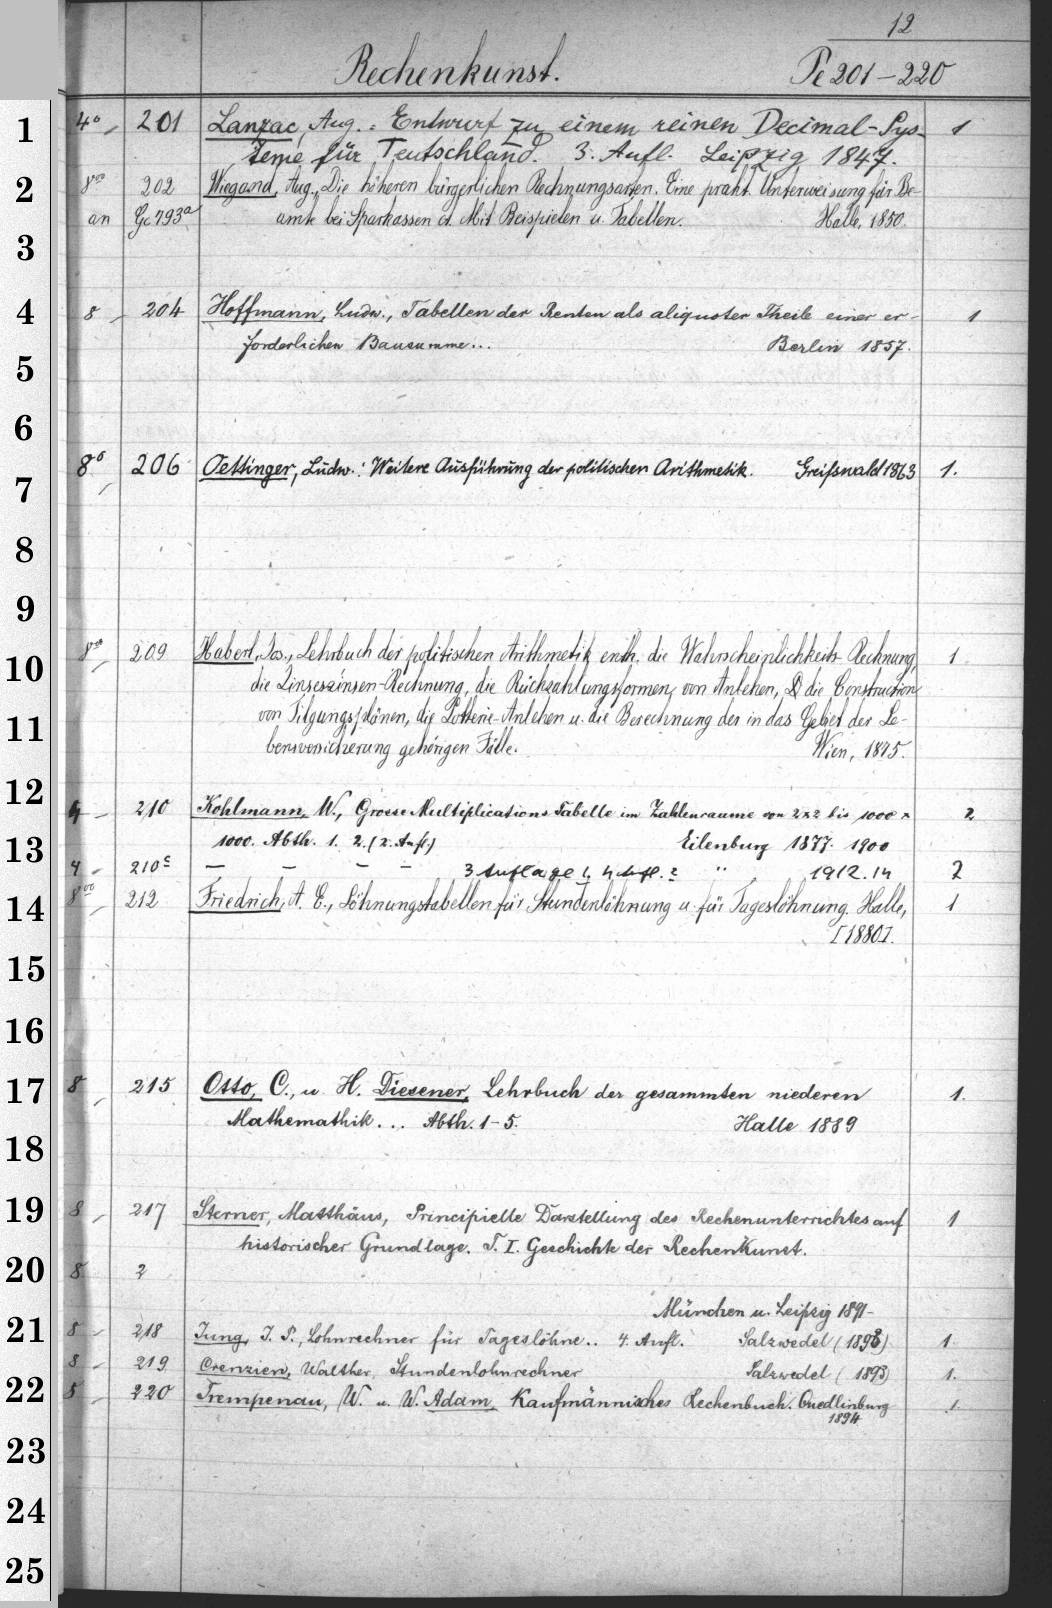 12
Rechenkunst. Pe 201-220
1 4° 201 Lanzac, Aug.: Entwurf zu einem reinen Decimal-Sys- 1
steme für Teutschland. 3. Aufl. Leipzig 1847.
2 8vo 202 Wiegand, Aug., Die höheren bürgerlichen Rechnungsarten. Eine prakt. Unterweisung für Be-
an Gc 793a amte bei Sparkassen ct. Mit Beispielen u. Tabellen. Halle, 1850.
3
4 8 204 Hoffmann, Ludw., Tabellen der Renten als aliquoter Theile einer er- 1
forderlichen Bausumme... Berlin 1857.
5
6
8° 206 Oettinger, Ludw.: Weitere Ausführung der politischen Arithmetik. Greifswald 1863 1.
7
8
9
10 8vo 209 Haberl, Jos., Lehrbuch der politischen Arithmetik enth. die Wahrscheinlichkeits-Rechnung, 1
die Zinseszinsen-Rechnung, die Rückzahlungsformen von Anlehen, die Construction
11 von Tilgungsplänen, die Lotterie-Anlehen u. die Berechnung der in das Gebiet der Le-
bensversicherung gehörigen Fälle. Wien, 1875.
12 4 210 Kohlmann, W., Grosse Multiplications Tabelle im Zahlenraume von 2x2 bis 1000 x 2
13 1000. Abth. 1. 2. (2. Aufl.) Eilenburg 1877. 1900
4 210c — — — — 3 Auflage 4 Aufl. 2 " 1912.14 2
14 8vo 212 Friedrich, A. E., Löhnungstabellen für Stundenlöhnung u. für Tageslöhnung. Halle, 1
[1880].
15
16
17 8 215 Otto, C., u. H. Diesener, Lehrbuch der gesammten niederen 1.
Mathemathik... Abth. 1-5. Halle 1889
18
19 8 217 Sterner, Matthäus, Principielle Darstellung des Rechenunterrichtes auf 1
historischer Grundlage. T. I. Geschichte der Rechenkunst.
20 8 2
München u. Leipzig 1891-
21 8 218 Jung, J. P., Lohnrechner für Tageslöhne.. 4. Aufl. Salzwedel (1893) 1
8 219 Crenzien, Walther, Stundenlohnrechner Salzwedel (1893) 1.
22 8 220 Trempenau, W. u. W. Adam, Kaufmännisches Rechenbuch. Quedlinburg 1.
1894
23
24
25